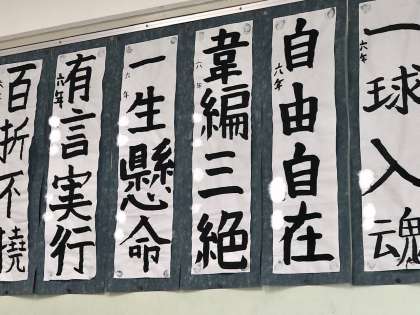 一球入魂
六年
自由自在
六年
韋編三絶
六年
一生懸命
六年
有言実行
六年
百折不撓